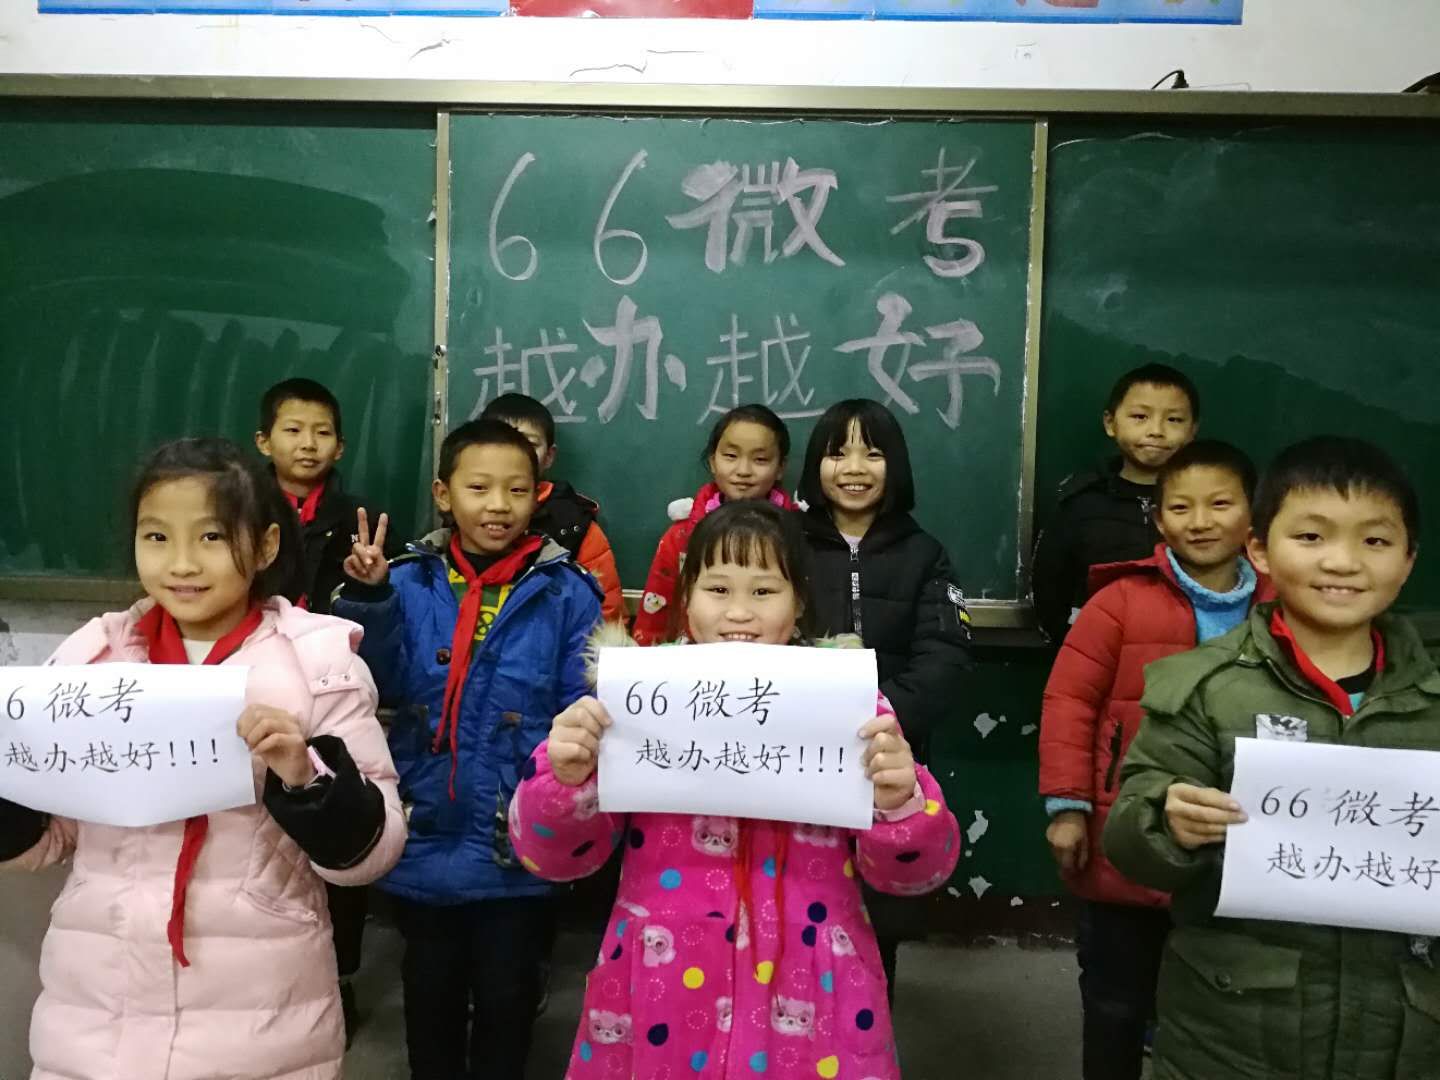 66微考
越办越好
6微考
越办越好!!!
66微考
越办越好!!!
66微考
越办越好